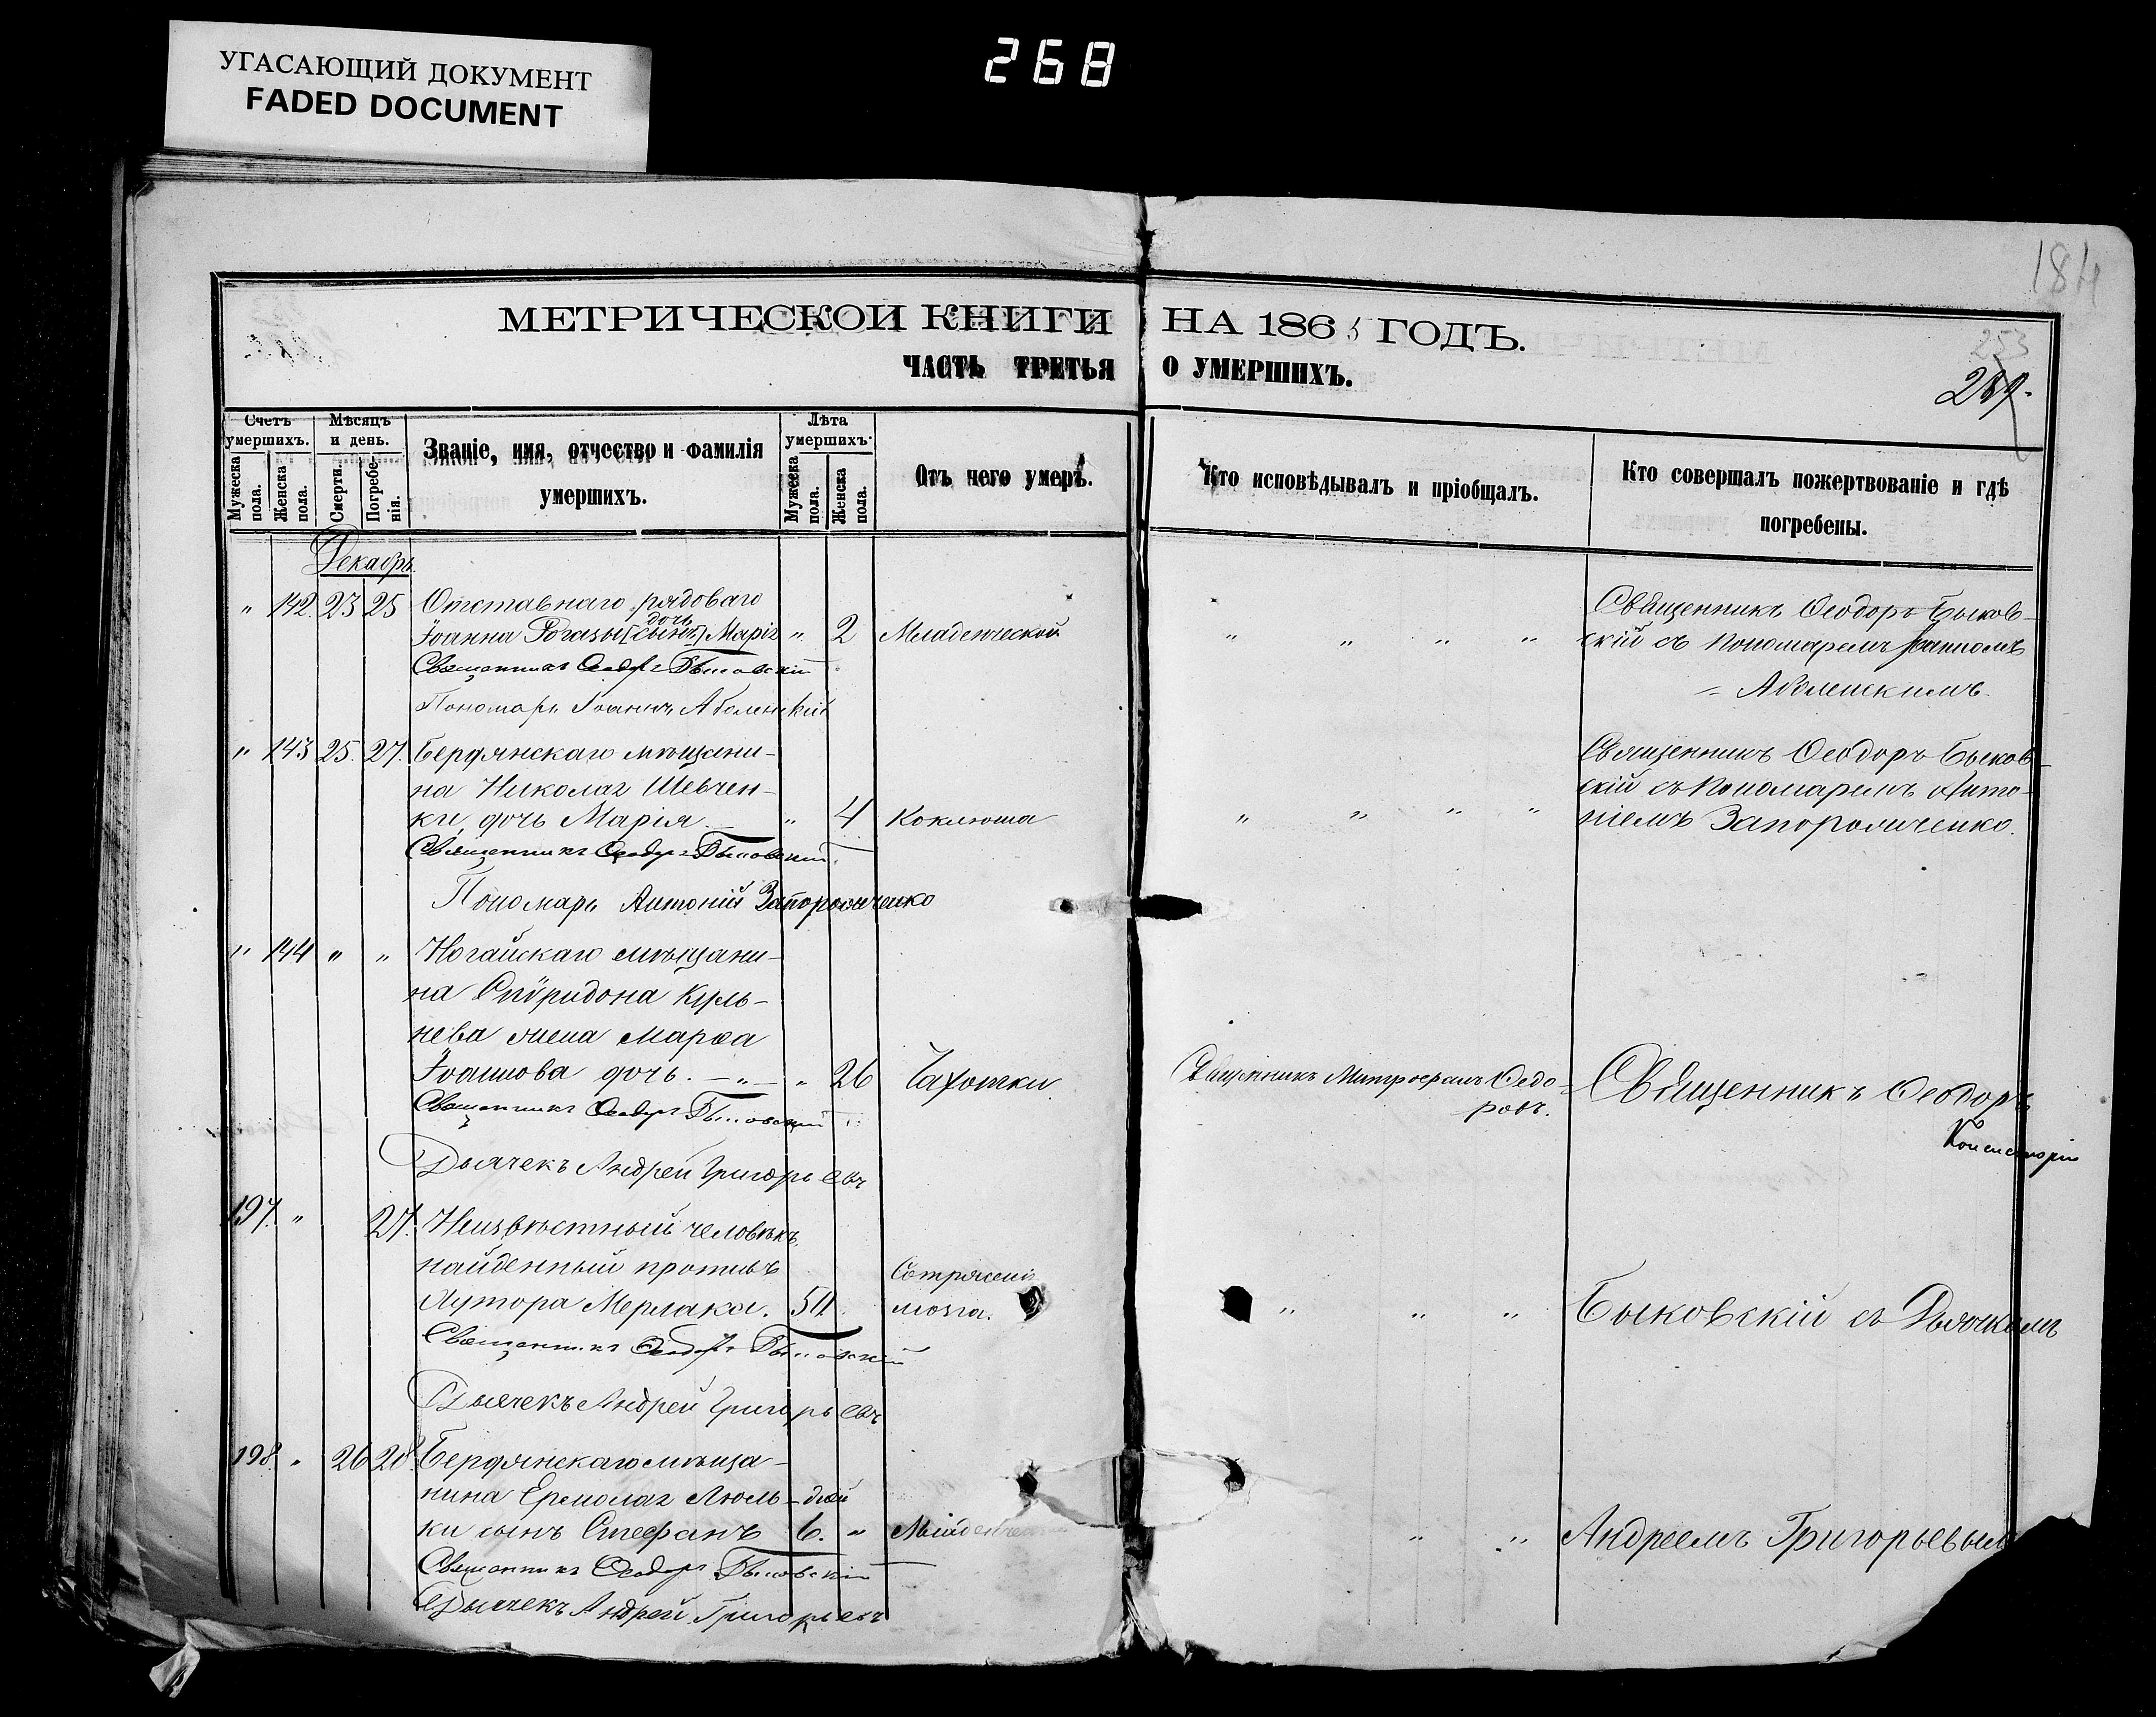 УГАСАЮЩИЙ ДОКУМЕНТ
FADED DOCUMENT
268
184
МЕТРИЧЕСКОЙ КНИГИ НА 1865 ГОДЪ.
ЧАСТЬ ТРЕТЬЯ О УМЕРШИХЪ.
253
Счетъ умершихъ.
Мужеска пола.
Женска пола.
Мѣсяцъ и день.
Смерти.
Погребенія.
Званіе, имя, отчество и фамилія умершихъ.
Лѣта умершихъ.
Мужеска пола.
Женска пола.
Отъ чего умеръ.
Кто исповѣдывалъ и пріобщалъ.
Кто совершалъ пожертвованіе и гдѣ погребены.
Декабрь
" 142. 23 25 Отставнаго рядоваго
дочь
Іоанна Рогазы [сынъ] Марія " 2 Младенческой " " " "
Священникъ Ѳеодоръ Быковскій
Пономарь Іоаннъ Аболенскій
Священникъ Ѳеодоръ Быков-
скій съ Пономаремъ Іоанномъ
Аболенскимъ.
" 143 25. 27. Бердянскаго мѣщани-
на Николая Шевчен-
ки, дочь Марія " 4 Коклюша " " " "
Священникъ Ѳеодоръ Быковскій.
Пономарь Антоній Запорожченко
Священникъ Ѳеодоръ Быков-
скій съ Пономаремъ Анто-
ніемъ Запорожченко.
" 144 " " Ногайскаго мѣщани-
на Спѵридона
нева жена Марѳа
Іоаннова дочь. " 26 Чахотки
Священникъ Ѳеодоръ Быковскій
Дьячекъ Андрей Григорьевъ
Священникъ Митрофанъ Ѳедо-
ровъ.
Священникъ Ѳеодоръ
Консисторіи
197. " 27. Неизвѣстный человѣкъ,
найденный противъ
Хутора Мерлака. 50 Сотрясенія
мозга. " " "
Священникъ Ѳеодоръ Быковскій
Дьячекъ Андрей Григорьевъ
Быковскій съ Дьячкомъ
198. " 26 28. Бердянскаго мѣща-
нина Ермолая Люль- дней
ки сынъ Стефанъ 6. " Младенческой " "
Священникъ Ѳеодоръ Быковскій
Дьячекъ Андрей Григорьевъ
Андреемъ Григорьевым